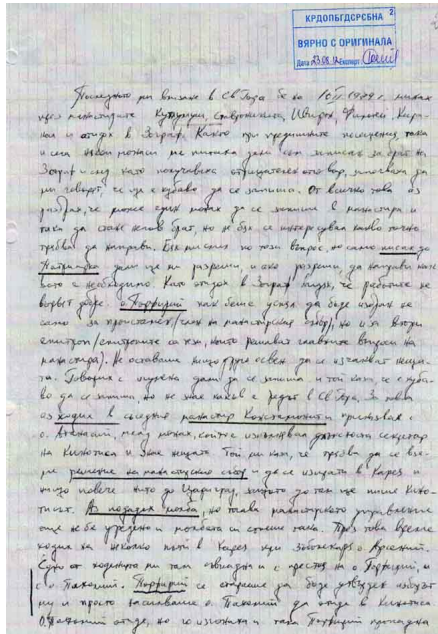 КРДОПБГДСРСБНА 2
ВЯРНО С ОРИГИНАЛА
Дата Експерт
Последното ми влизане в Св Гора бе на 1979 г. минах
през манастирите Кутлумуш, Ставроникита, Ивирон, Филотей, Кара-
кал и отидох в Зограф. Както при предишните посещения, така
и сега някои монаси ме питаха дали съм записан за брат на
Зограф и след като получаваха отрицателен отговор, започваха да
ми говорят, че ще е хубаво да се запиша. От всичко това аз
разбрах, че може един монах да се запише в манастира и
така да стане негов брат, но не бях се интересувал какво точно
трябва да направи. Бях мислил по този въпрос, но само писах до
Патриарха дали ще ми разреши и ако разреши, да направи как-
вото е необходимо. Като отидох в Зограф видях, че работите не
вървят добре. о. Порфирий как беше успял да бъде избран не
само за проистамен /член на манастирския събор/, но и за втори
епитроп /епитропите са тези, които решават главните въпроси на
манастира). Не оставаше нищо друго освен да се изчакват неща-
та. Говорих с игумена дали да се запиша и той каза, че е хуба-
во да се запиша, но не знае какъв е редът в Св Гора. За това
отходих в съседния манастир Констамонит и приказвах с
о. Агатий, млад монах, който е изпълнявал длъжността секретар
на Кинотиса и знае нещата. Той ми каза, че трябва да се взе-
ме решение на манастирския събор и да се изпрати в Карея и
нищо повече нито до Цариград, защото до там ще пише Кино-
тисът. Аз подадох молба, но тогава манастирското управление
още не бе уредено и молбата си стоеше така. През това време
ходих на няколко пъти в Карея при зографски о. Арсений.
Едно от ходенията ми там съвпадна и с престоя на о. Порфирий, и
с о. Пахомий. Порфирий се опитваше да бъде утвърден изборът
му и просто насилваше о. Пахомий да отиде в Кинотиса
О. Пахомий отиде, но го изгониха и така Порфирий пропадна